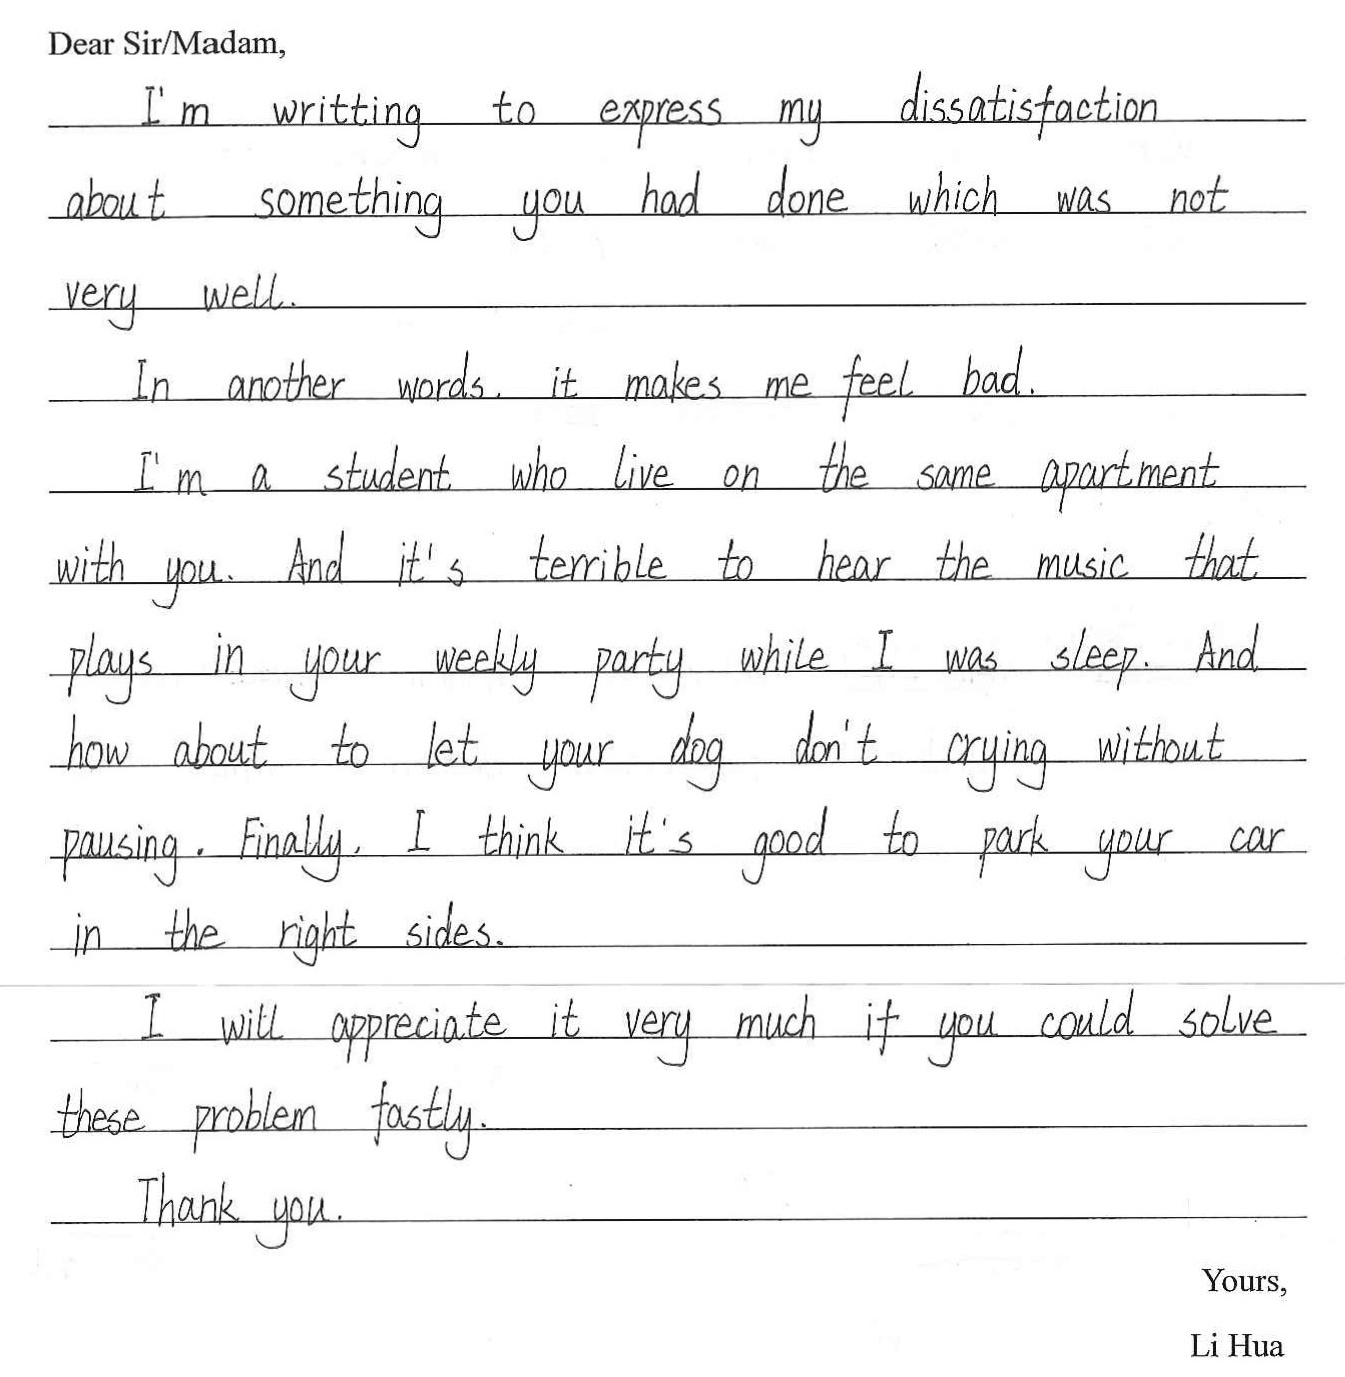 Dear Sir/Madam,
I'm writting to express my dissatisfaction
about something you had done which was not
very well.
In another words. it makes me feel bad.
I'm a student who live on the same apartment
with you. And it's terrible to hear the music that
plays in your weekly party while I was sleep. And
how about to let your dog don't crying without
pausing. Finally. I think it's good to park your car
in the right sides.
I will appreciate it very much if you could solve
these problem fastly.
Thank you.
Yours,
Li Hua